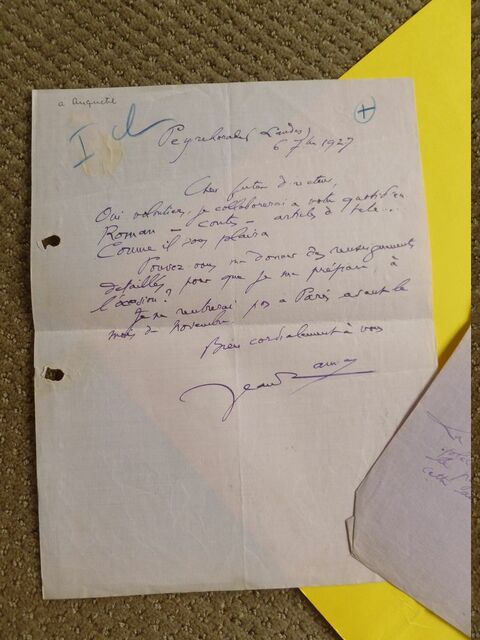 a Anquetil
I
+
Peyrehorade (Landes)
6 7bre 1927
Cher futur directeur,
Oui volontiers, je collaborerai à votre quotidien
Roman – contes – articles de tête...
Comme il vous plaira
Pouvez vous me donner des renseignements
détaillés pour que je me prépare, à
l'occasion?
Je ne rentrerai pas à Paris avant le
mois de novembre
Bien cordialement à vous
Jean Rameau